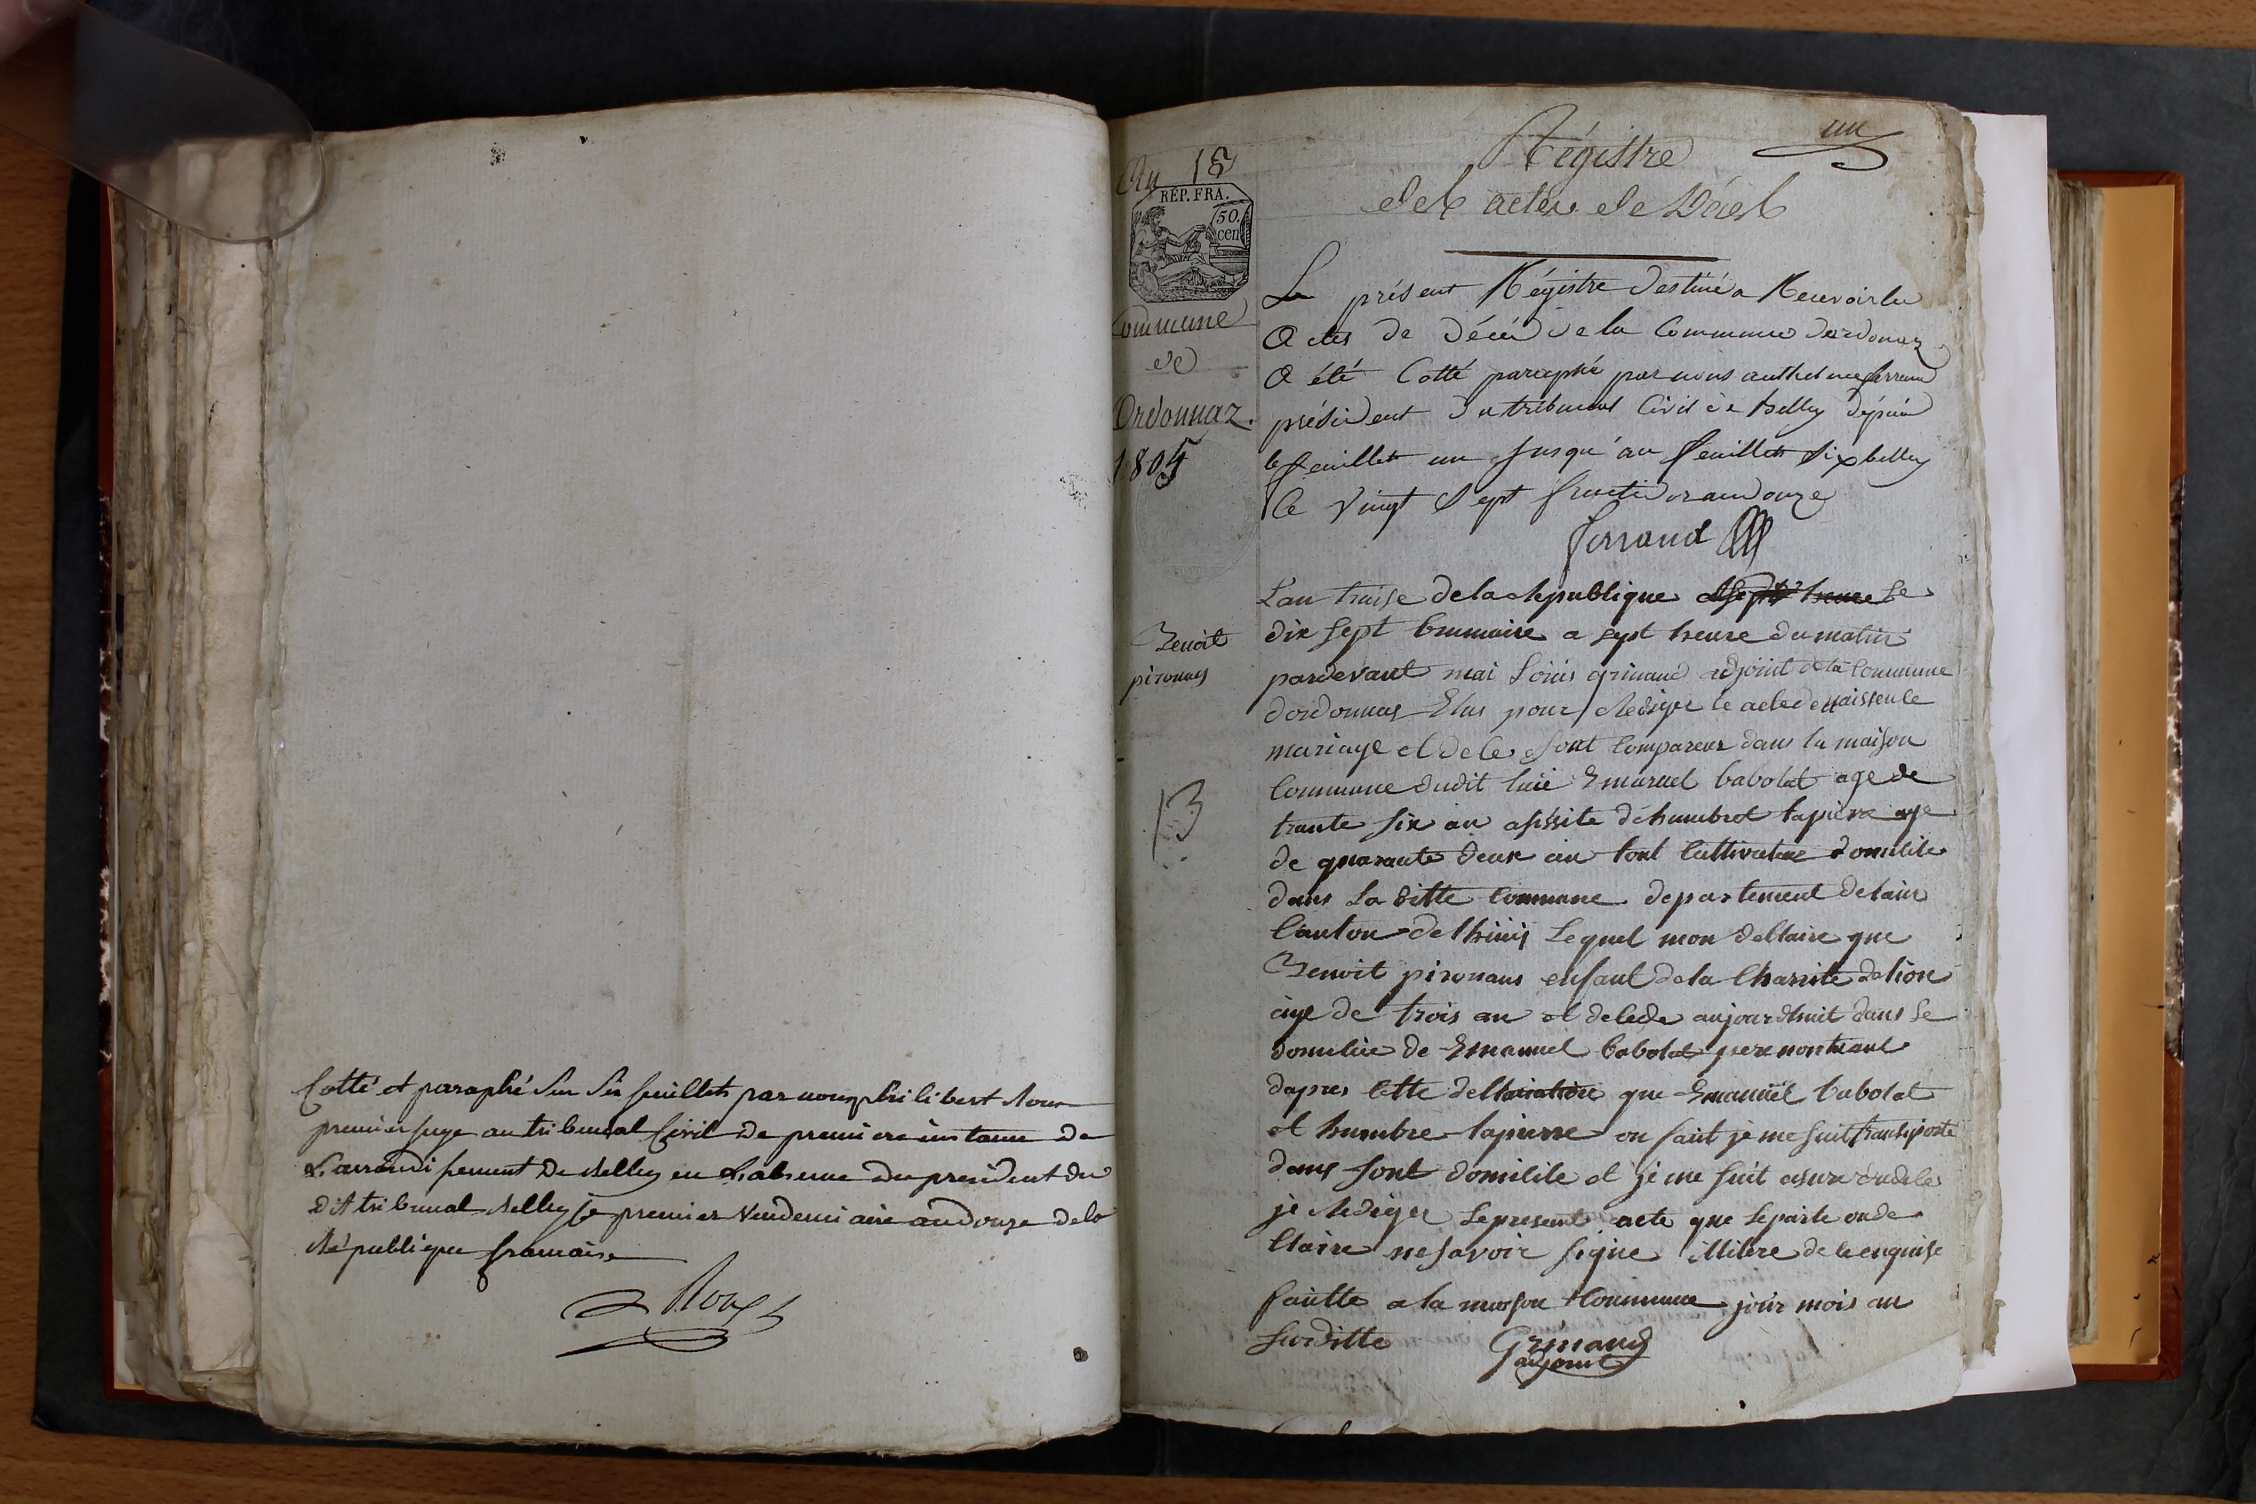 Cotté et paraphé sur six feuillets par nous philibert Roux
premier juge au tribunal Civil de premiere instance de
L'arrondissement de Belley en L'absence du president du
dit tribunal Belley le premier Vendemiaire an douze de la
République francaise
Roux
un
An 13
RÉP. FRA.
50.
cen
Commune
de
Ordonnaz.
1804
Benoit
pironnas
13
Régistre
des actes de Décès
Le présent Régistre destiné a Recevoir les
Actes de Décès de la Commune dordonnaz
A été Cotté paraphé par nous anthelme ferrand
président du tribunal Civil de belley dépuis
le feuillet un Jusqu'au feuillet Six belley
le Vingt Sept fructidor an douze
ferrand
L'an traise de la Republique le
dix sept brumaire a sept heure du matin
pardevant moi Louis grinand adjoint de la Commune
dordonnas Elus pour Rediger le acte de Naissence
mariage et décé sont Compareus dans la maison
Commune dudit lieu Emanuel babolat age de
trante six an assiste dehumbert lapierre age
de quarante deux an tout Cultivateur domicile
dans La ditte Commune departement de lain
Canton de Lhuis Lequel mon déClaire que
Benoit pironnas enfant de la Charrite de lion
age de trois an et décéde aujourdhuit dans le
domicile de Emanuel babolat pere nontriant
dapres cette declaration que Emanuel babolat
et humbre lapierre on fait je me suit transporté
dans sont domicile et je me suit asure du dece
je Rediger le present acte que le parte on de
Claire ne savoir signe illitere de ce enquise
faitte a la maison Commune jour mois an
surditte
Grinand
adjoint